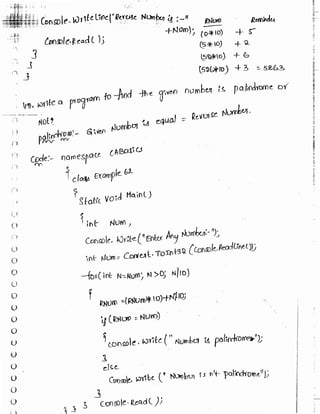 Console.WriteLine("Reverse Number is :-"
+RNum);
Console.Read( );
}
}
}
RNum Reminder
(0*10) + 5
(5*10) + 2
(52*10) + 6
(526*10) + 3 = 5263
write a program to find the given number is palindrome or
not?
palindrome:- Given Number is equal = Reverse Number.
Code:- namespace CABasics
{ class Example 62
{
Static void Main( )
{
int Num,
Console.Write("Enter Any Number:-");
int Num = Convert.ToInt32 (Console.ReadLine());
for( int N=Num; N>0; N/10)
{
RNum =(RNum*10)+N%10;
if (RNum = Num)
{
console.write(" Number is palindrome");
}
else
Console.write (" Number is n't palindrome");
}
} } } Console.Read( );